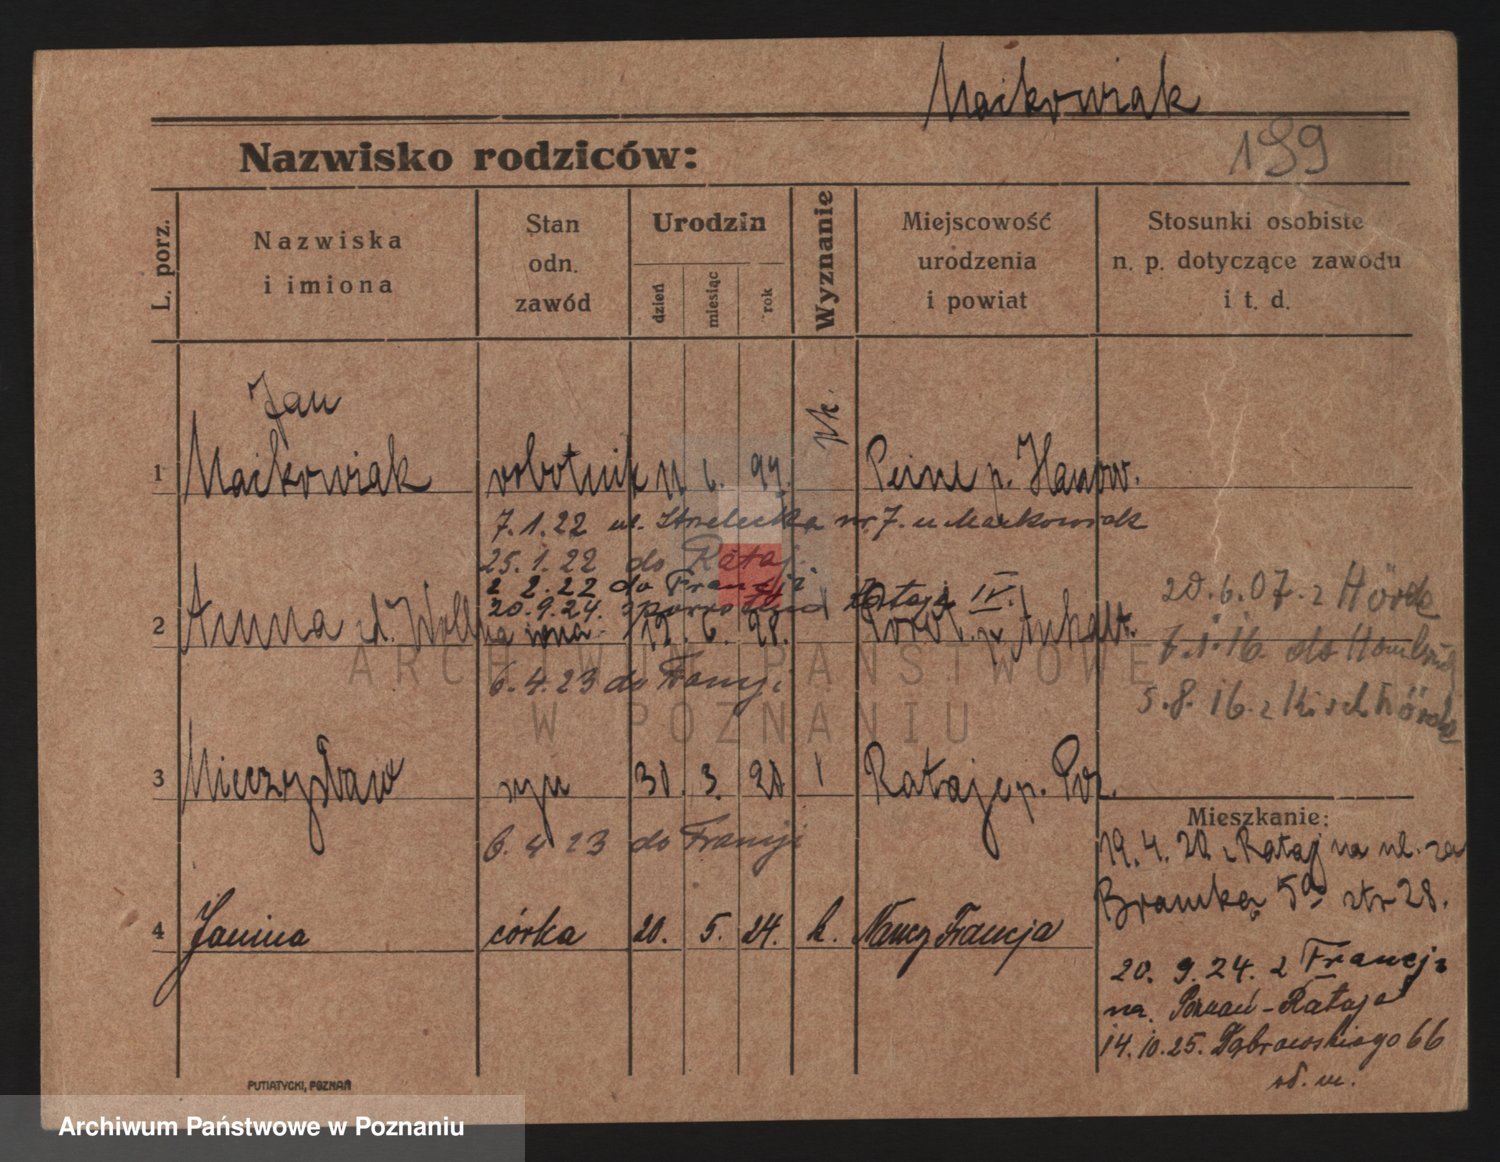 Maikowiak
Nazwisko rodziców:
199
L. porz.
Nazwiska
i imiona
Stan
odn.
zawód
Urodzin
dzień
miesiąc
rok
Wyznanie
Miejscowość
urodzenia
i powiat
Stosunki osobiste
n. p. dotyczące zawodu
i t. d.
Jan
1 Maikowiak robotnik 11 6. 99. rk. Peine p. Hanow.
7.1.22 ul. Strzelecka nr. 7. u Maikowiak
25.1.22 do Rataj
2 2.22 do Francji
20.9.24. z powrotem Rataje IV.
2 Anna d. żona 12. 6. 98. Anhalt.
6.4.23 do Francji
20.6.07. z Hörde
7.1.16. do Homberg
5.8.16. z Hörde
3 Mieczysław syn 30. 3. 20 Rataje p. Poz.
6.4 23 do Francji
Mieszkanie:
19.4.20. z Rataj na ul. za
Bramką 5a str 28.
4 Janina córka 20. 5. 24. k. Nancy Francja
20. 9. 24. z Francji
na. Poznań-Rataje
14.10.25. Dąbrowskiego 66
PUTIATYCKI, POZNAŃ
ARCHIWUM PAŃSTWOWE
W POZNANIU
Archiwum Państwowe w Poznaniu